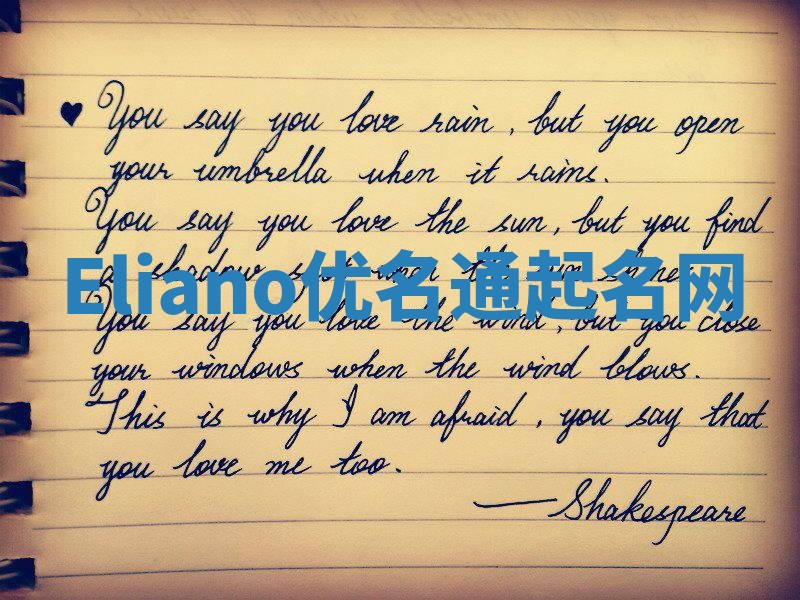 You say you love rain, but you open
your umbrella when it rains.
You say you love the sun, but you find
a shadow spot when the sun shines.
Eliano优名通起名网
You say you love the wind, but you close
your windows when the wind blows.
This is why I am afraid, you say that
you love me too.
—Shakespeare